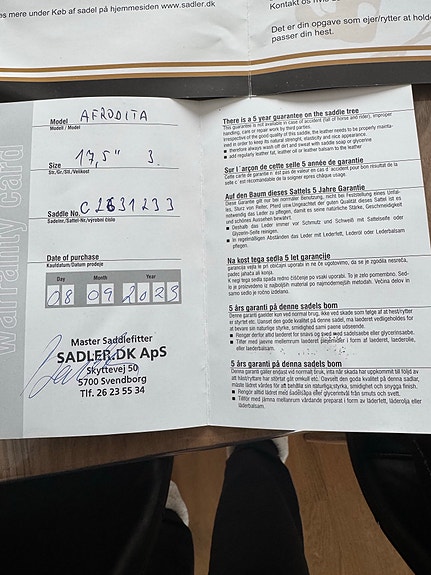 es mere under Køb af sadel på hjemmesiden www.sadler.dk
Kontakt os hvis d
Det er din opgave som ejer/rytter at holde
passer din hest.
warranty card
Model AFRODITA
Modell / Model
Size 17,5" 3.
Str./Gr./Stl./Velikost
Saddle No. C2631233
Sadelnr./Sattel-Nr./vyrobni čislo
Date of purchase
Kaufdatum/Datum prodeje
Day Month Year
08 09 2023
Master Saddlefitter
SADLER.DK ApS
Skyttevej 50
5700 Svendborg
Tlf. 26 23 55 34
There is a 5 year guarantee on the saddle tree
This guarantee is not available in case of accident (fall of horse and rider), improper
handling, care or repair work by third parties.
Irrespective of the good quality of this saddle, the leather needs to be properly maintai-
ned in order to keep its natural strength, elasticity and nice appearance.
■ therefore always wash off dirt and sweat with saddle soap or glycerine
■ add regularly leather fat, leather oil or leather balsam to the leather
Sur l´arçon de cette selle 5 année de garantie
Cette carte de garantie n´est pas de valeur en cas d´accident pour bon résultat de la
selle c´est récomandable de la soigner épres chaque usage.
Auf den Baum dieses Sattels 5 Jahre Garantie
Diese Garantie gilt nur bei normaler Benutzung, nicht bei Feststellung eines Unfal-
les, Sturz von Reiter, Pferd usw.Ungeachtet der guten Qualität dieses Sattel ist es
notwendig das Leder zu pflegen, damit es seine natürliche Stärke, Geschmeidigkeit
und schönes Aussehen bewahrt.
■ Deshalb das Leder immer vor Schmutz und Schweiß mit Sattelseife oder
Glyzerin-Seife reinigen.
■ In regelmäßigen Abständen das Leder mit Lederfett, Lederöl oder Lederbalsam
pflegen.
Na kost tega sedla 5 let garancije
garancija velja le pri običajni uporabi in ne če ugotovimo, da se je zgodila nesreča,
padec jahača ali konja.
K negi tega sedla spada redno čiščenje po vsaki uporabi. To je zelo pomembno. Sedlo
je proizvedeno iz najboljših material po najmodernejših metodah. Večina delov na
samo sedlo je ročno izdelano.
5 års garanti på denne sadels bom
Denne garanti gælder kun ved normal brug, ikke ved skade som følge af at hest/rytter
er styrtet etc. Uanset den gode kvalitet på denne sadel, må læderet vedligeholdes for
at bevare sin naturlige styrke, smidighed samt pæne udseende.
■ Rengør derfor altid læderet for snavs og sved med sadelsæbe eller glycerinsæbe.
■ Tilfør med jævne mellemrum læderet plejemidler i form af læderfedt, læderolie,
eller læderbalsam.
5 års garanti på denna sadels bom
Denna garanti gäller endast vid normalt bruk, inte när skada har uppkommit till följd av
att häst/ryttare har störtat gått omkull etc. Oavsett den goda kvalitet på denna sadlar,
måste lädret vårdas för att behålla sin naturliga styrka, smidighet och snygga finish.
■ Rengör alltid lädret med sadelsåpa eller glycerintvål från smuts och svett.
■ Tillför med jämna mellanrum vårdande preparat i form av läderfett, läderolja eller
läderbalsam.